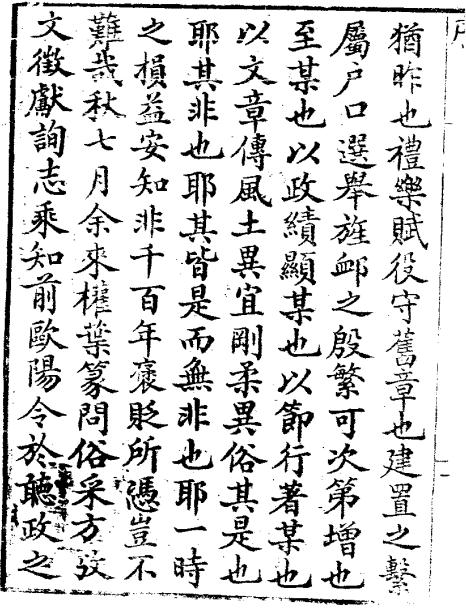 猶昨也禮樂賦役守舊章也建置之繫
屬户口選舉旌䘏之殷繁可次第增也
至某也以政績顯某也以節行著某也
以文章傳風土異宜剛柔異俗其是也
耶其非也耶其皆是而無非也耶一時
之損益安知非千百年褒貶所憑豈不
難哉秋七月余來權葉篆問俗采方攷
文徵獻詢志乘知前歐陽令於聽政之